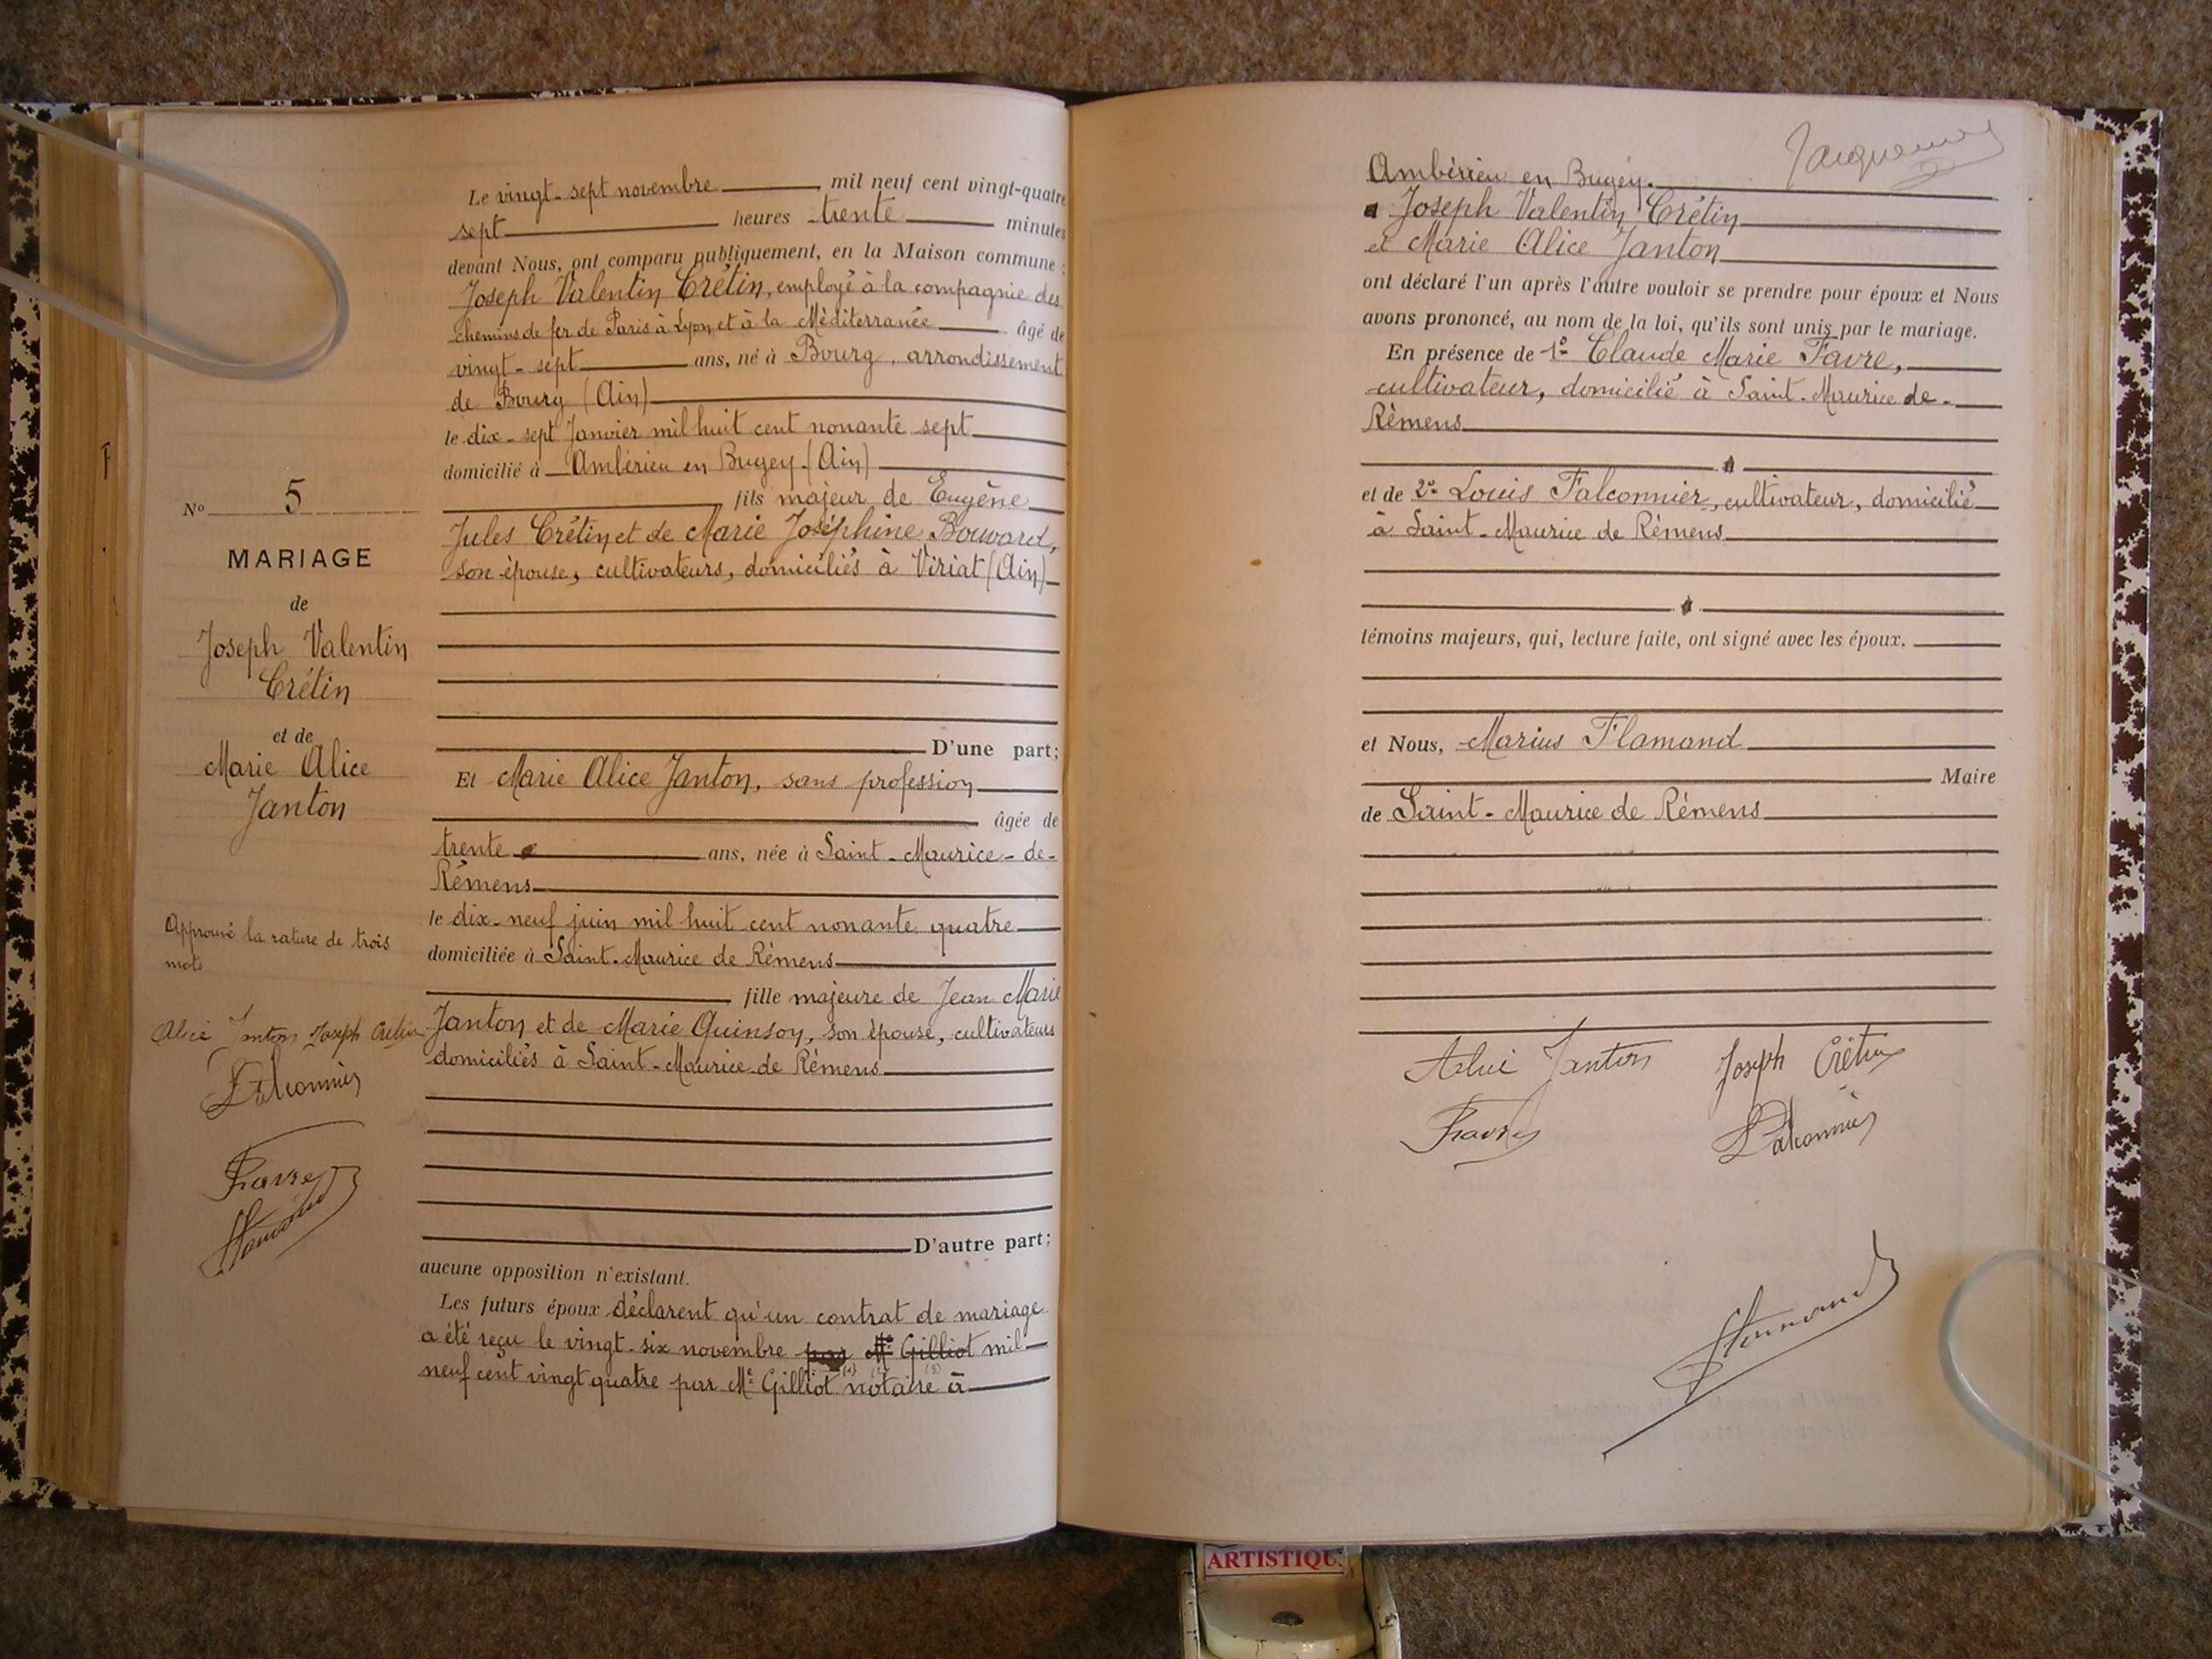 N° 5
MARIAGE
de
Joseph Valentin
Crétin
et de
Marie Alice
Janton
Approuvé la rature de trois
mots
Alice Janton Joseph Crétin
Falconnier
Favre
Flamand
Le vingt-sept novembre mil neuf cent vingt-quatre
sept heures trente minutes
devant Nous, ont comparu publiquement, en la Maison commune :
Joseph Valentin Crétin, employé à la compagnie des
chemins de fer de Paris à Lyon et à la Méditerranée âgé de
vingt-sept ans, né à Bourg, arrondissement
de Bourg (Ain)
le dix-sept Janvier mil huit cent nonante sept
domicilié à Ambérieu en Bugey (Ain)
fils majeur de Eugène
Jules Crétin et de Marie Joséphine Bouvard,
son épouse, cultivateurs, domiciliés à Viriat (Ain)
D'une part;
Et Marie Alice Janton, sans profession
âgée de
trente ans, née à Saint-Maurice-de-
Rémens
le dix-neuf juin mil huit cent nonante quatre
domiciliée à Saint-Maurice de Rémens
fille majeure de Jean Marie
Janton et de Marie Quinson, son épouse, cultivateurs
domiciliés à Saint-Maurice de Rémens
D'autre part;
aucune opposition n'existant.
Les futurs époux déclarent qu'un contrat de mariage
a été reçu le vingt-six novembre par Me Gilliot mil
(1) (2) (3)
neuf cent vingt quatre par Me Gilliot notaire à
Ambérieu en Bugey.
Joseph Valentin Crétin
et Marie Alice Janton
ont déclaré l'un après l'autre vouloir se prendre pour époux et Nous
avons prononcé, au nom de la loi, qu'ils sont unis par le mariage.
En présence de 1° Claude Marie Favre,
cultivateur, domicilié à Saint-Maurice de-
Rémens
et de 2° Louis Falconnier, cultivateur, domicilié
à Saint-Maurice de Rémens
témoins majeurs, qui, lecture faite, ont signé avec les époux.
et Nous, Marius Flamand
Maire
de Saint-Maurice de Rémens
Alice Janton Joseph Crétin
Favre Falconnier
Flamand
ARTISTIQU